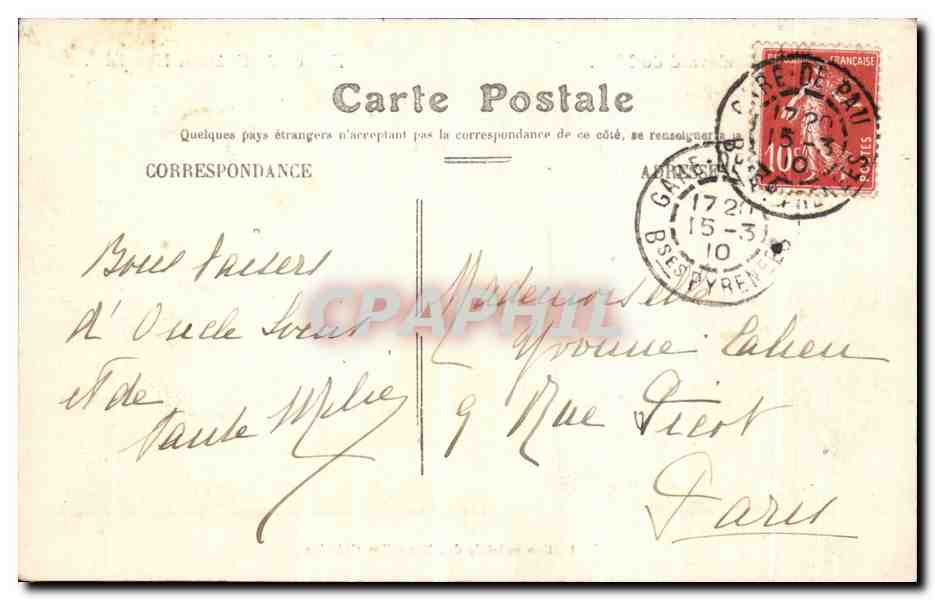 Carte Postale
Quelques pays étrangers n'acceptant pas la correspondance de ce côté, se renseigner à la
CORRESPONDANCE
ADRESSE
RÉPUBLIQUE FRANÇAISE
10c
POSTES
GARE DE PAU
17 20
15 - 3
10
Bses PYRENEES
GARE DE PAU
17 20
15 - 3
10
Bses PYRENEES
Bons baisers
d'Oncle
et de
Tante
Mademoiselle
Yvonne Cahen
9 Rue Picot
Paris
CPAPHIL